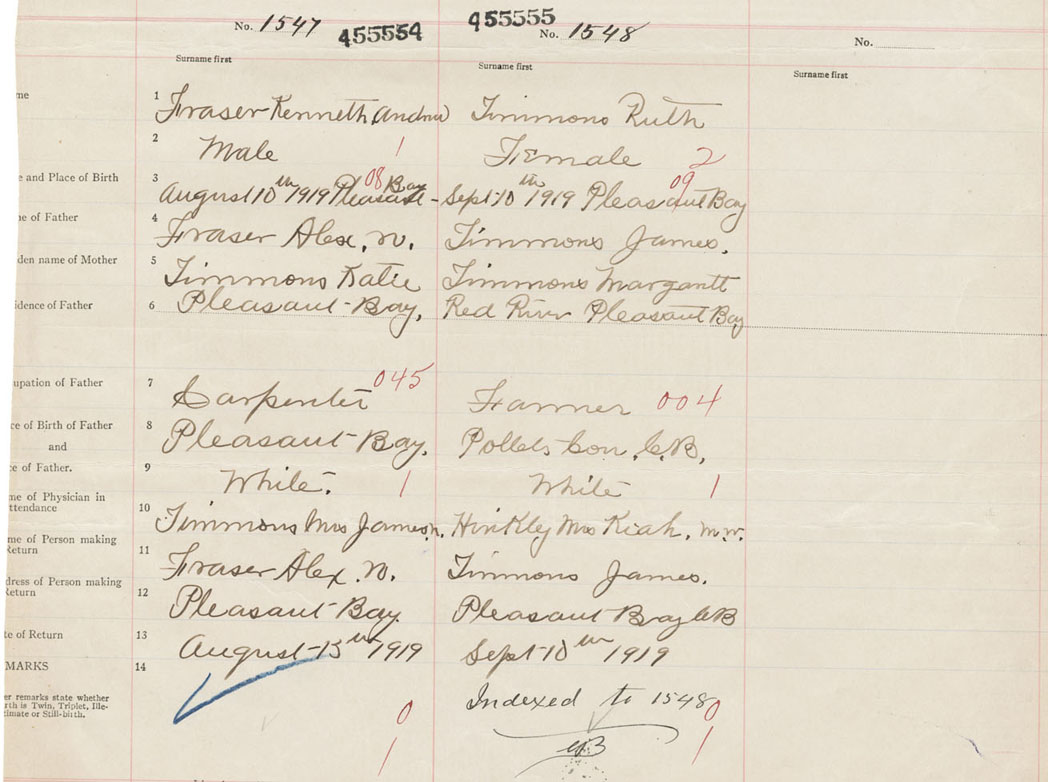 No. 1547 455554 455555 No. 1548 No.
Surname first Surname first Surname first
me 1 Fraser Kenneth Andrew Timmons Ruth
2 Male 1 Female 2
e and Place of Birth 3 August 10th 1919 Pleasant Bay 08 Sept 10th 1919 Pleasant Bay 09
ne of Father 4 Fraser Alex. N. Timmons James.
den name of Mother 5 Timmons Katie Timmons Margarett
idence of Father 6 Pleasant Bay, Red River Pleasant Bay
upation of Father 7 Carpenter 045 Farmer 004
ce of Birth of Father 8 Pleasant Bay. Pollets C.B.
and
ce of Father. 9 White. 1 White 1
me of Physician in
ttendance 10 Timmons Mrs James Hinkley Mrs Kiah. m.w.
me of Person making
Return 11 Fraser Alex. N. Timmons James.
ddress of Person making
Return 12 Pleasant Bay. Pleasant Bay CB
te of Return 13 August 13th 1919 Sept 10th 1919
MARKS 14
er remarks state whether
rth is Twin, Triplet, Ille-
timate or Still-birth.
Indexed to 1548
0 0
1 1